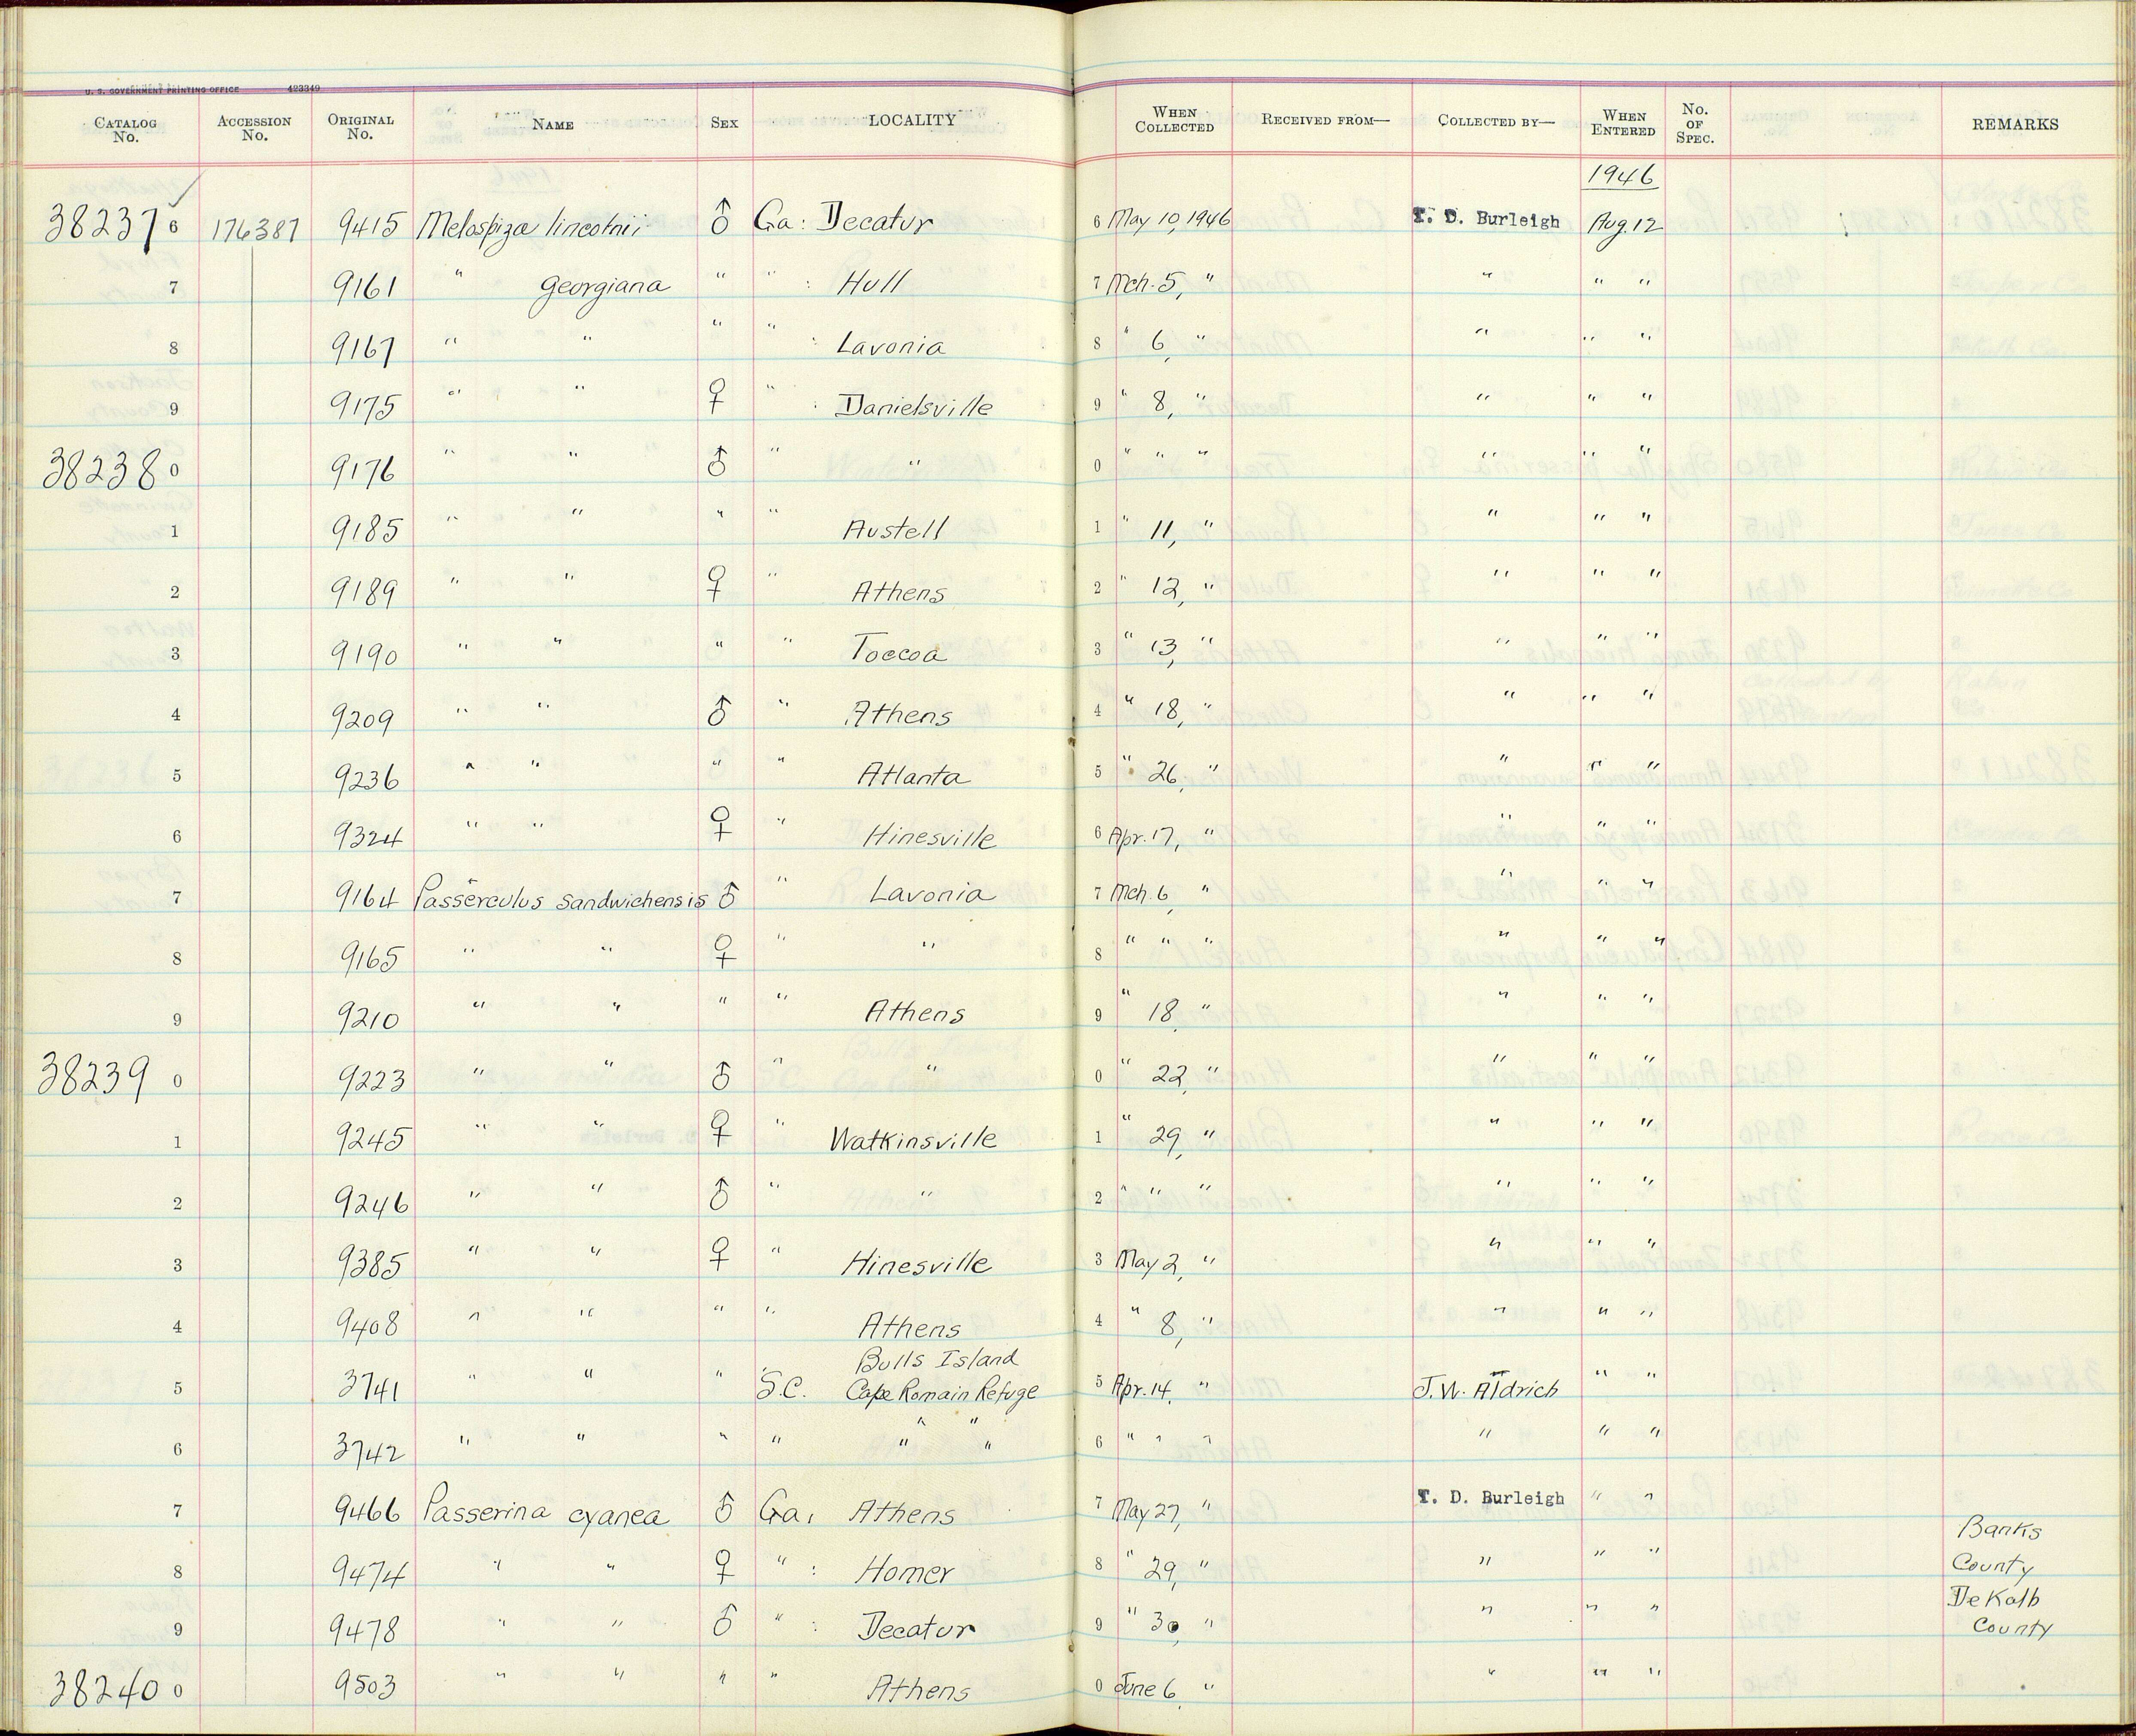 U. S. GOVERNMENT PRINTING OFFICE 423349
CATALOG No. ACCESSION No. ORIGINAL No. NAME SEX LOCALITY WHEN COLLECTED RECEIVED FROM— COLLECTED BY— WHEN ENTERED No. OF SPEC. REMARKS
1946
38237 6 176387 9415 Melospiza lincolnii ♂ Ga: Decatur 6 May 10, 1946 T. D. Burleigh Aug. 12
7 9161 " georgiana " " : Hull 7 Mch. 5, " " " "
8 9167 " " " " : Lavonia 8 " 6, " " " "
9 9175 " " ♀ " : Danielsville 9 " 8, " " " "
38238 0 9176 " " ♂ " " 0 " " " " " "
1 9185 " " " " Austell 1 " 11, " " " "
2 9189 " " ♀ " Athens 2 " 12, " " " "
3 9190 " " " " Toccoa 3 " 13, " " " "
4 9209 " " ♂ " Athens 4 " 18, " " " "
5 9236 " " " " Atlanta 5 " 26, " " " "
6 9324 " " ♀ " Hinesville 6 Apr. 17, " " " "
7 9164 Passerculus sandwichensis ♂ " Lavonia 7 Mch. 6, " " " "
8 9165 " " ♀ " " 8 " " " " " "
9 9210 " " " " Athens 9 " 18, " " " "
38239 0 9223 " " ♂ " " 0 " 22, " " " "
1 9245 " " ♀ " Watkinsville 1 " 29, " " " "
2 9246 " " ♂ " " 2 " " " " " "
3 9385 " " ♀ " Hinesville 3 May 2, " " " "
4 9408 " " " " Athens 4 " 8, " " " "
Bulls Island
5 3741 " " " S.C. Cape Romain Refuge 5 Apr. 14, " J. W. Aldrich " "
" "
6 3742 " " " " " " 6 " " " " " "
7 9466 Passerina cyanea ♂ Ga, Athens 7 May 27, " T. D. Burleigh " "
Banks
8 9474 " " ♀ " : Homer 8 " 29, " " " " County
DeKalb
9 9478 " " ♂ " : Decatur 9 " 30, " " " " County
38240 0 9503 " " " " Athens 0 June 6, " " " "